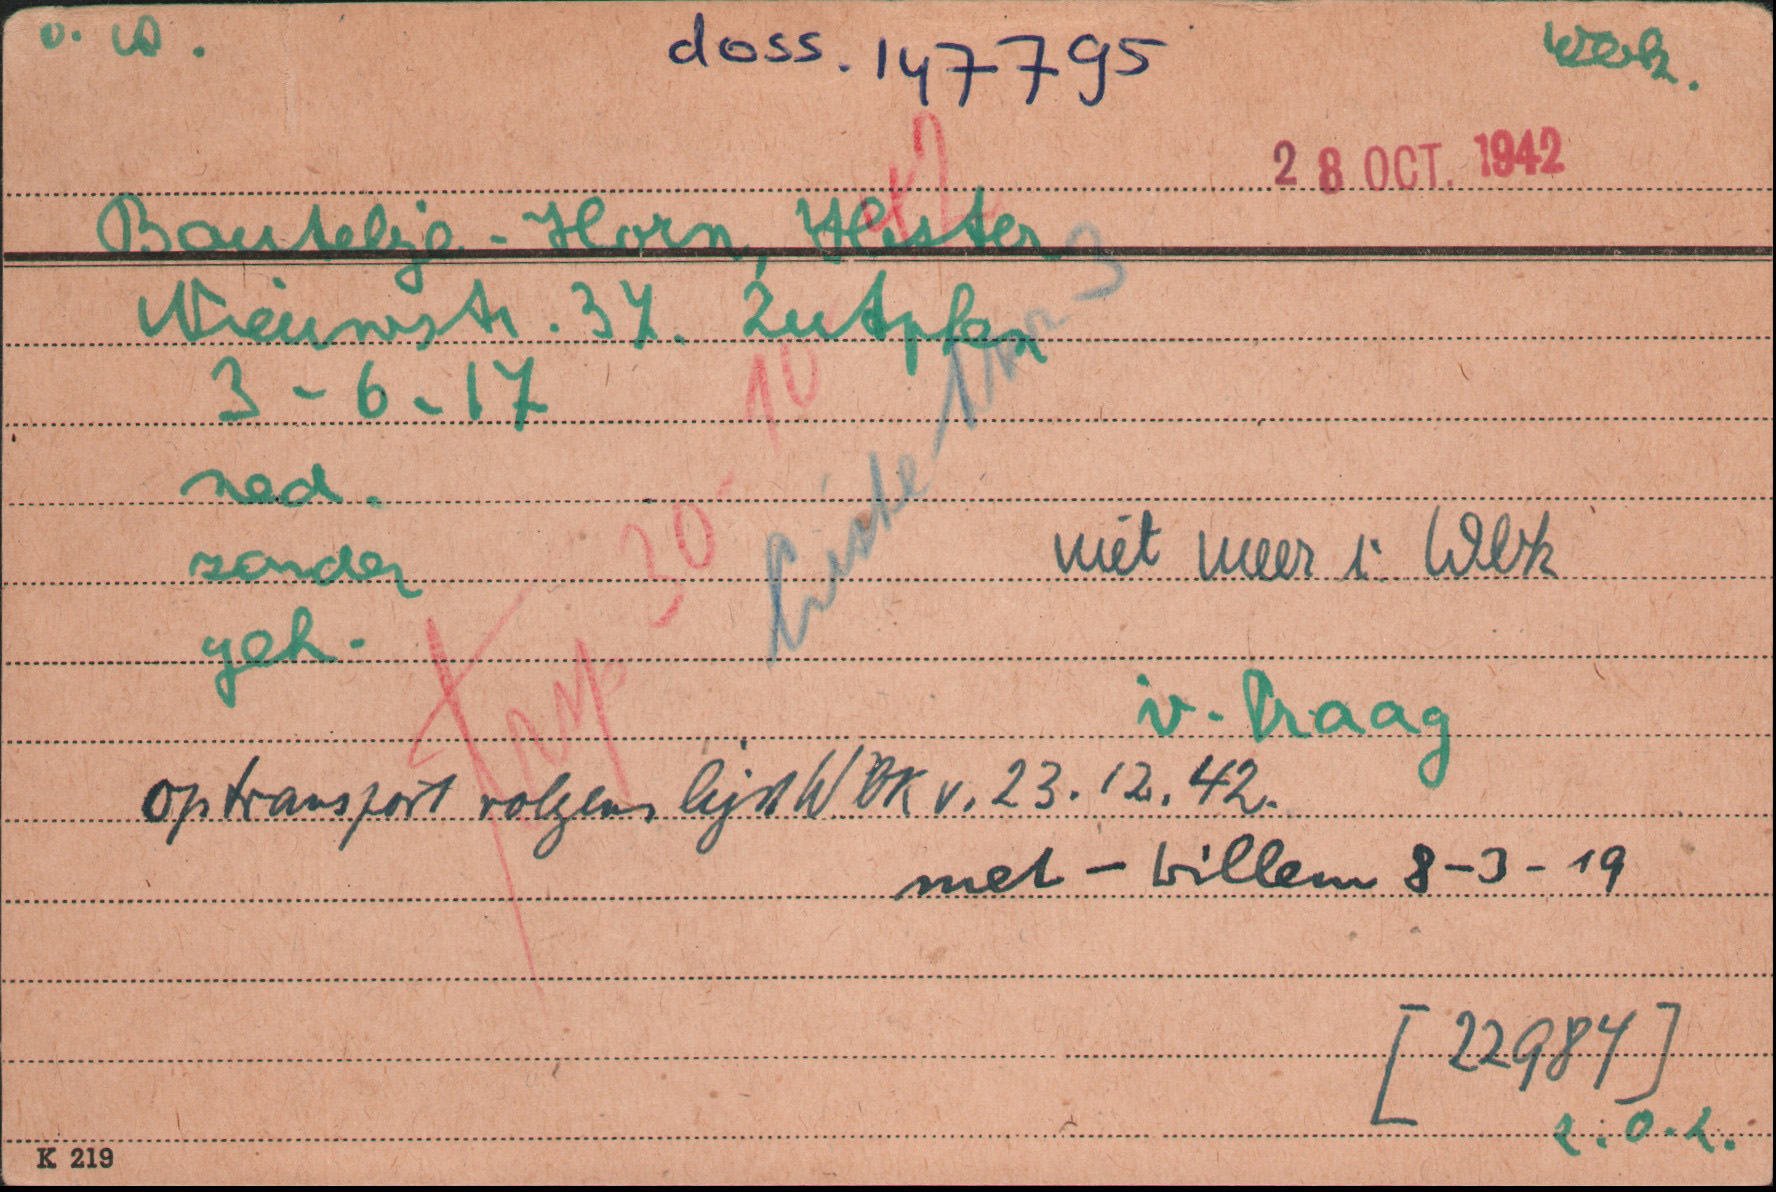 v. W.
doss. 147795
Wbk.
28 OCT. 1942
Boutelje-Horn, Hester
Nieuwstr. 37. Zutphen
3-6-17
ned.
zonder
geh.
Trsp. 30 10 42
Liste Nr. 3
niet meer i. Wbk
v. Praag
op transport volgens lijst WBK v. 23.12.42.
met - Willem 8-3-19
[22984]
z.o.z.
K 219